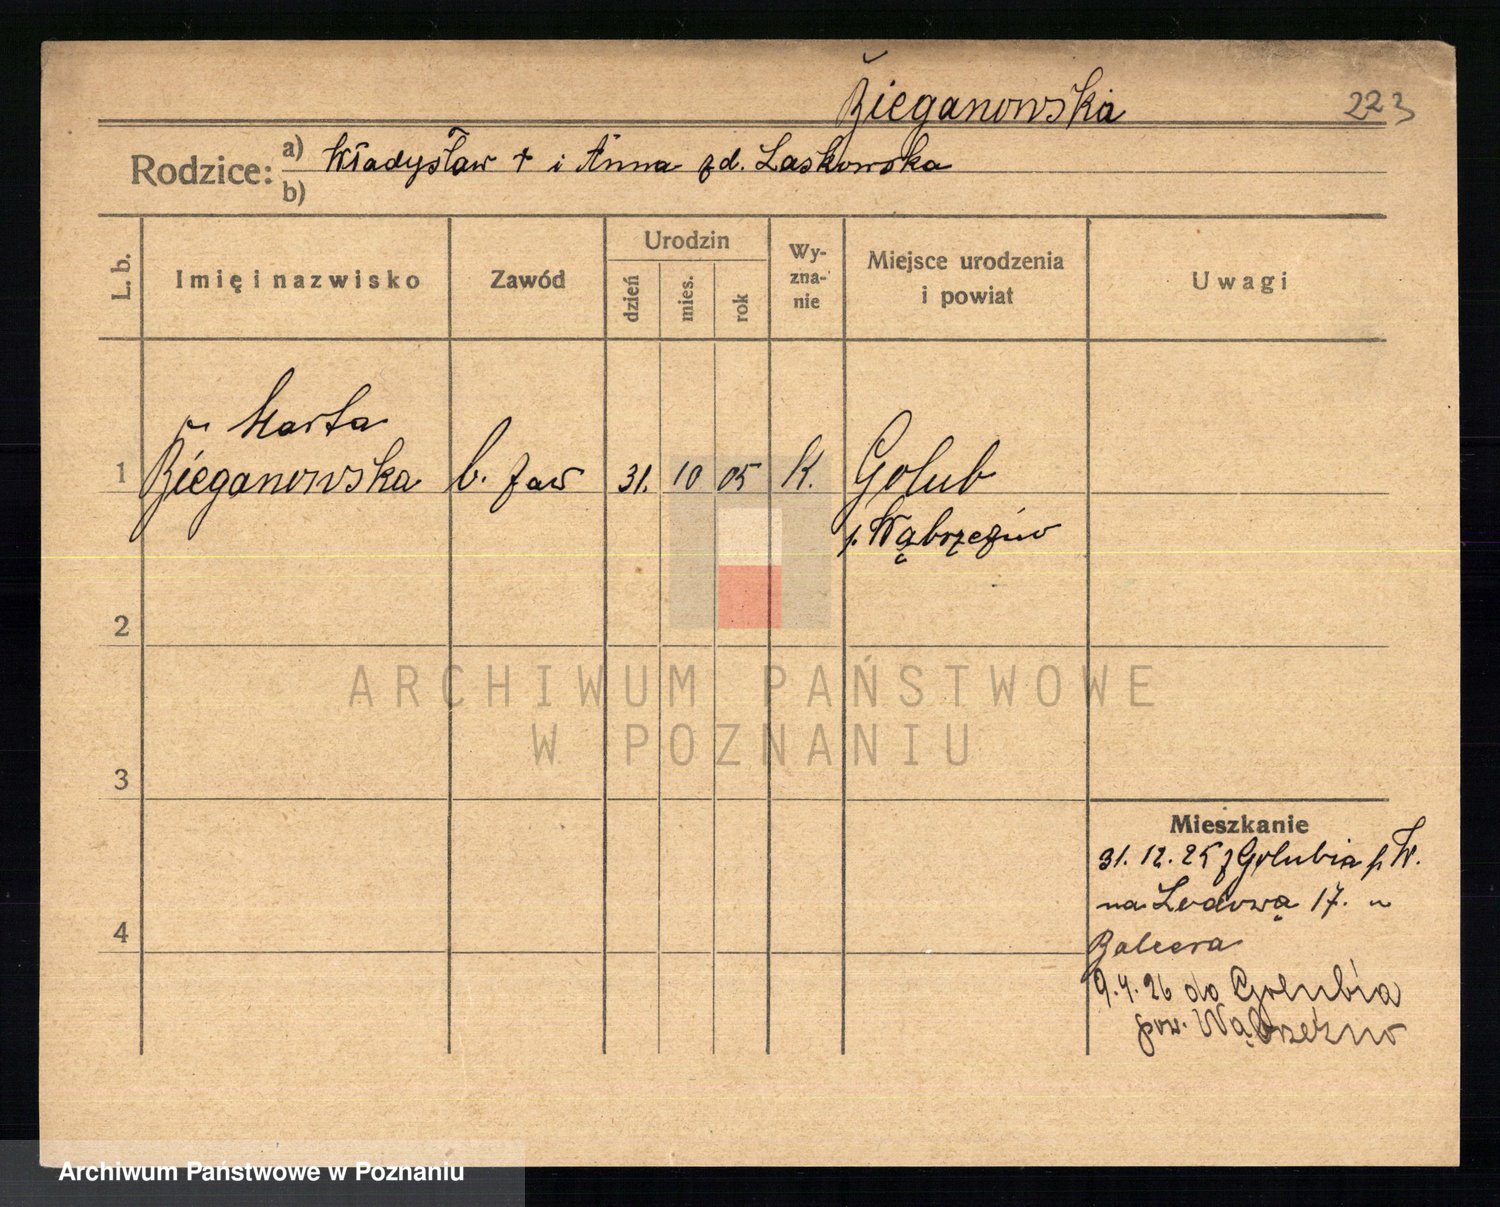 Bieganowska 223
Rodzice: a) Władysław + i Anna zd. Laskowska
b)
L. b. Imię i nazwisko Zawód Urodzin dzień mies. rok Wy-zna-nie Miejsce urodzenia i powiat Uwagi
Marta
1 Bieganowska b. zaw 31. 10 05 K. Golub
p. Wąbrzeźno
2
ARCHIWUM PAŃSTWOWE
W POZNANIU
3
Mieszkanie
31. 12. 25 z Golubia p W.
na Lodową 17. u
4
Balcera
9. 4. 26 do Golubia
pow. Wąbrzeźno
Archiwum Państwowe w Poznaniu